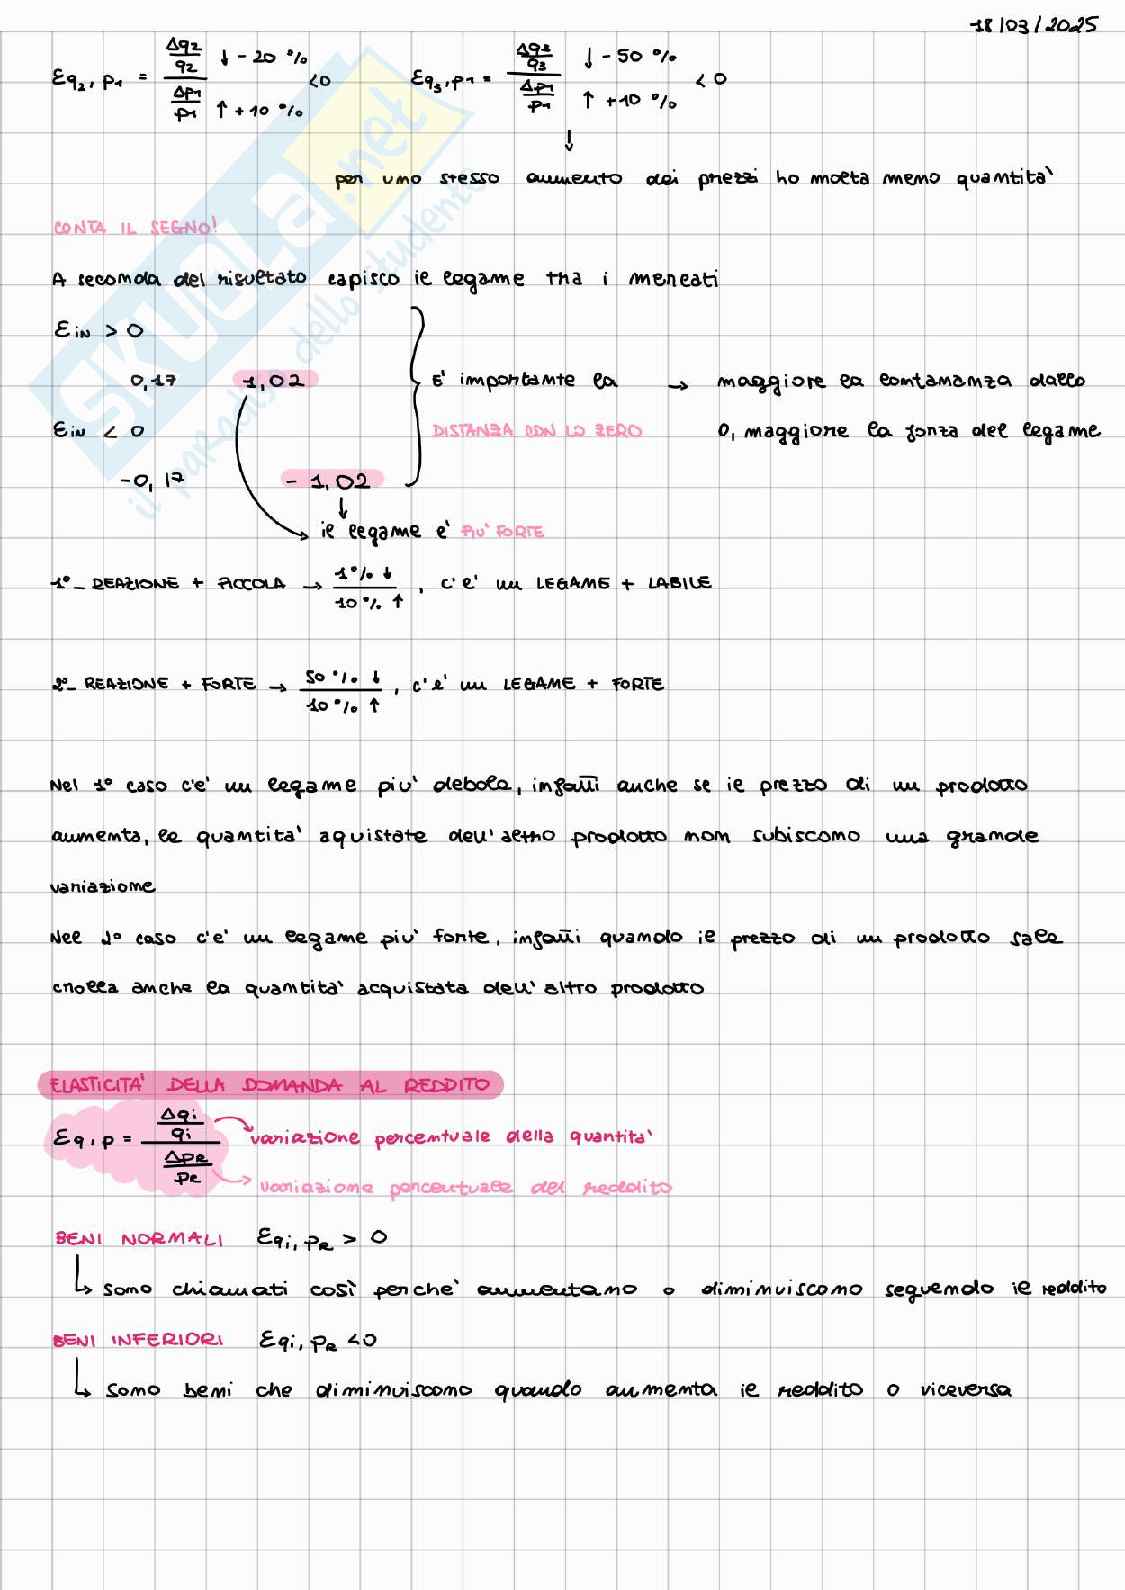 18/03/2025
Εq₂, p₁ = (Δq₂/q₂)/(Δp₁/p₁) ↓ -20 % ↑ +10 % <0 Εq₃, p₁ = (Δq₃/q₃)/(Δp₁/p₁) ↓ -50 % ↑ +10 % <0
↓
per uno stesso aumento dei prezzi ho molta meno quantita'
CONTA IL SEGNO!
A seconda del risultato capisco il legame tra i mercati
ΕiN > 0
0,17 1,02 E' importante la → maggiore la lontananza dallo
ΕiN < 0 DISTANZA CON LO ZERO 0, maggiore la forza del legame
-0,17 - 1,02
↓
il legame e' PIU' FORTE
1°_ REAZIONE + PICCOLA → 1% ↓ / 10% ↑ , c'e' un LEGAME + LABILE
2°_ REAZIONE + FORTE → 50 % ↓ / 10 % ↑ , c'e' un LEGAME + FORTE
Nel 1° caso c'e' un legame piu' debole, infatti anche se il prezzo di un prodotto
aumenta, le quantita' aquistate dell'altro prodotto non subiscono una grande
variazione
Nel 2° caso c'e' un legame piu' forte, infatti quando il prezzo di un prodotto sale
crolla anche la quantita' acquistata dell'altro prodotto
ELASTICITA' DELLA DOMANDA AL REDDITO
Εq,p = (Δqi/qi)/(ΔpR/pR) variazione percentuale della quantita'
variazione percentuale del reddito
BENI NORMALI Εqi, pR > 0
↳ sono chiamati così perche' aumentano o diminuiscono seguendo il reddito
BENI INFERIORI Εqi, pR <0
↳ sono beni che diminuiscono quando aumenta il reddito o viceversa
SKUOLA.net
il paradiso dello studente